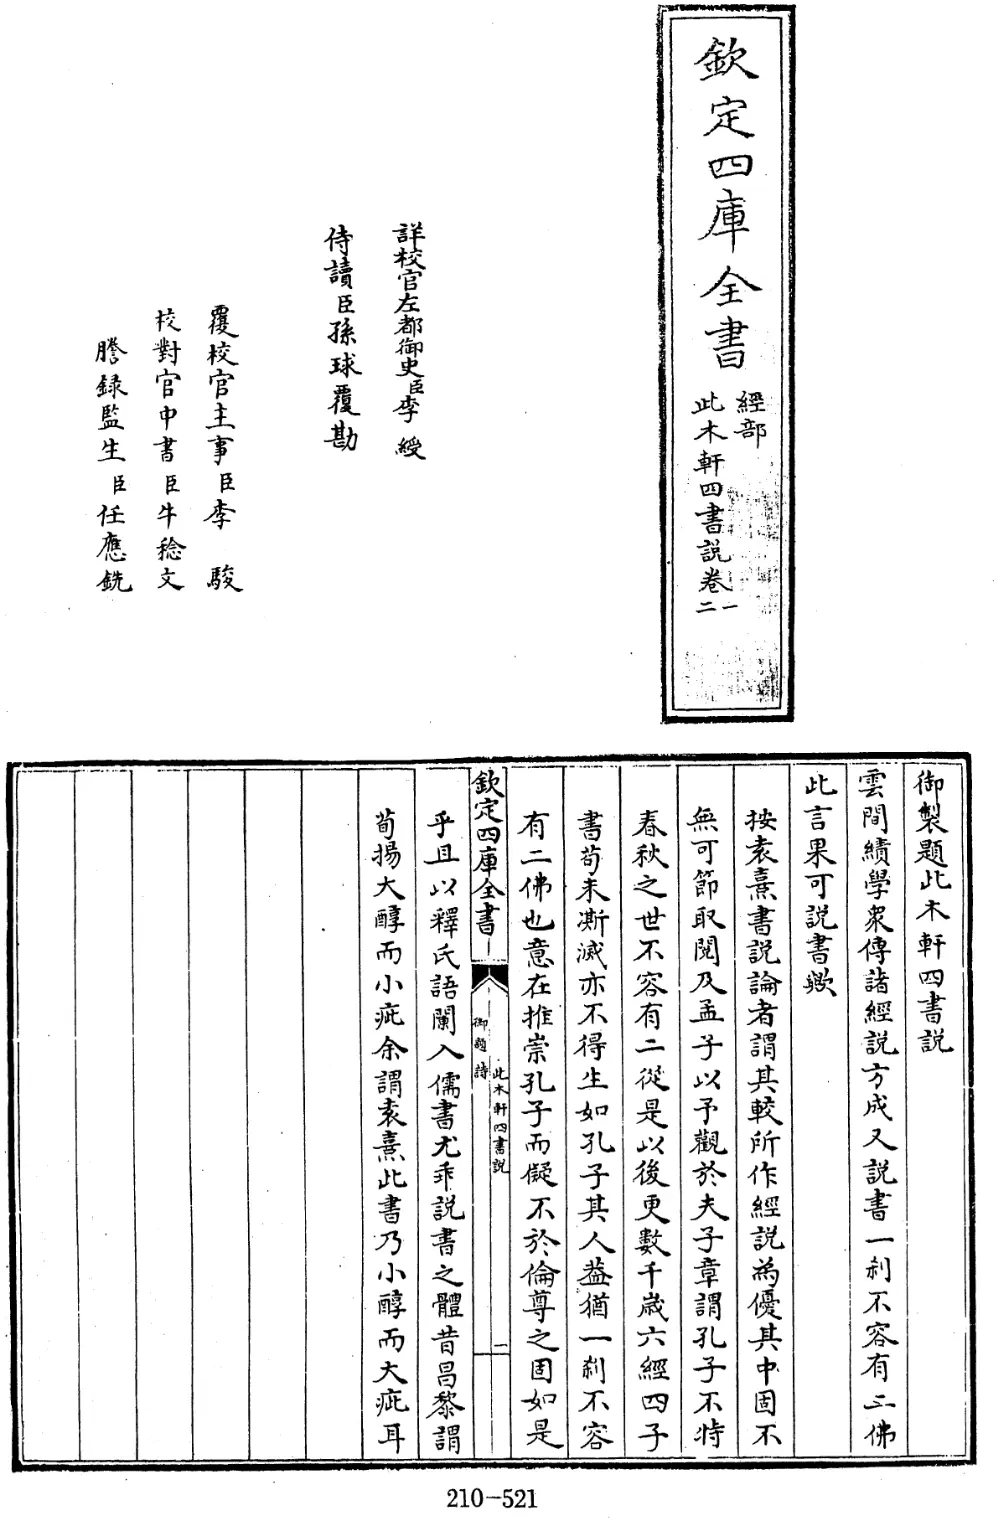 欽定四庫全書
經部
此木軒四書説卷一
二
詳校官左都御史臣李綬
侍讀臣孫球覆勘
覆校官主事臣李駿
校對官中書臣牛稔文
謄錄監生臣任應銑
御製題此木軒四書説
雲間績學衆傳諸經説方成又説書一刹不容有二佛
此言果可説書歟
按袁熹書説論者謂其較所作經説為優其中固不
無可節取閱及孟子以予觀於夫子章謂孔子不特
春秋之世不容有二從是以後更數千歲六經四子
書茍未澌滅亦不得生如孔子其人葢猶一刹不容
有二佛也意在推崇孔子而儗不於倫尊之固如是
欽定四庫全書
御題詩
此木軒四書説
一
乎且以釋氏語闌入儒書尤乖説書之體昔昌黎謂
荀揚大醇而小疵余謂袁熹此書乃小醇而大疵耳
210-521